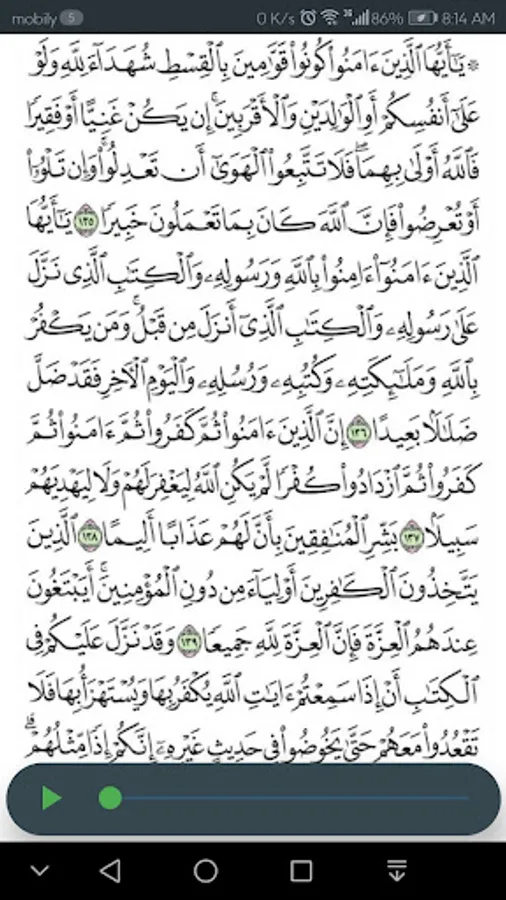 mobily 5 0 K/s 86% 8:14 AM
۞ يَٰٓأَيُّهَا ٱلَّذِينَ ءَامَنُوا۟ كُونُوا۟ قَوَّٰمِينَ بِٱلْقِسْطِ شُهَدَآءَ لِلَّهِ وَلَوْ
عَلَىٰٓ أَنفُسِكُمْ أَوِ ٱلْوَٰلِدَيْنِ وَٱلْأَقْرَبِينَ ۚ إِن يَكُنْ غَنِيًّا أَوْ فَقِيرًا
فَٱللَّهُ أَوْلَىٰ بِهِمَا ۖ فَلَا تَتَّبِعُوا۟ ٱلْهَوَىٰٓ أَن تَعْدِلُوا۟ ۚ وَإِن تَلْوُۥٓا۟
أَوْ تُعْرِضُوا۟ فَإِنَّ ٱللَّهَ كَانَ بِمَا تَعْمَلُونَ خَبِيرًا ١٣٥ يَٰٓأَيُّهَا
ٱلَّذِينَ ءَامَنُوٓا۟ ءَامِنُوا۟ بِٱللَّهِ وَرَسُولِهِۦ وَٱلْكِتَٰبِ ٱلَّذِى نَزَّلَ
عَلَىٰ رَسُولِهِۦ وَٱلْكِتَٰبِ ٱلَّذِىٓ أَنزَلَ مِن قَبْلُ ۚ وَمَن يَكْفُرْ
بِٱللَّهِ وَمَلَٰٓئِكَتِهِۦ وَكُتُبِهِۦ وَرُسُلِهِۦ وَٱلْيَوْمِ ٱلْءَاخِرِ فَقَدْ ضَلَّ
ضَلَٰلًۢا بَعِيدًا ١٣٦ إِنَّ ٱلَّذِينَ ءَامَنُوا۟ ثُمَّ كَفَرُوا۟ ثُمَّ ءَامَنُوا۟ ثُمَّ
كَفَرُوا۟ ثُمَّ ٱزْدَادُوا۟ كُفْرًا لَّمْ يَكُنِ ٱللَّهُ لِيَغْفِرَ لَهُمْ وَلَا لِيَهْدِيَهُمْ
سَبِيلًۢا ١٣٧ بَشِّرِ ٱلْمُنَٰفِقِينَ بِأَنَّ لَهُمْ عَذَابًا أَلِيمًا ١٣٨ ٱلَّذِينَ
يَتَّخِذُونَ ٱلْكَٰفِرِينَ أَوْلِيَآءَ مِن دُونِ ٱلْمُؤْمِنِينَ ۚ أَيَبْتَغُونَ
عِندَهُمُ ٱلْعِزَّةَ فَإِنَّ ٱلْعِزَّةَ لِلَّهِ جَمِيعًا ١٣٩ وَقَدْ نَزَّلَ عَلَيْكُمْ فِى
ٱلْكِتَٰبِ أَنْ إِذَا سَمِعْتُمْ ءَايَٰتِ ٱللَّهِ يُكْفَرُ بِهَا وَيُسْتَهْزَأُ بِهَا فَلَا
تَقْعُدُوا۟ مَعَهُمْ حَتَّىٰ يَخُوضُوا۟ فِى حَدِيثٍ غَيْرِهِۦٓ ۚ إِنَّكُمْ إِذًا مِّثْلُهُمْ ۗ